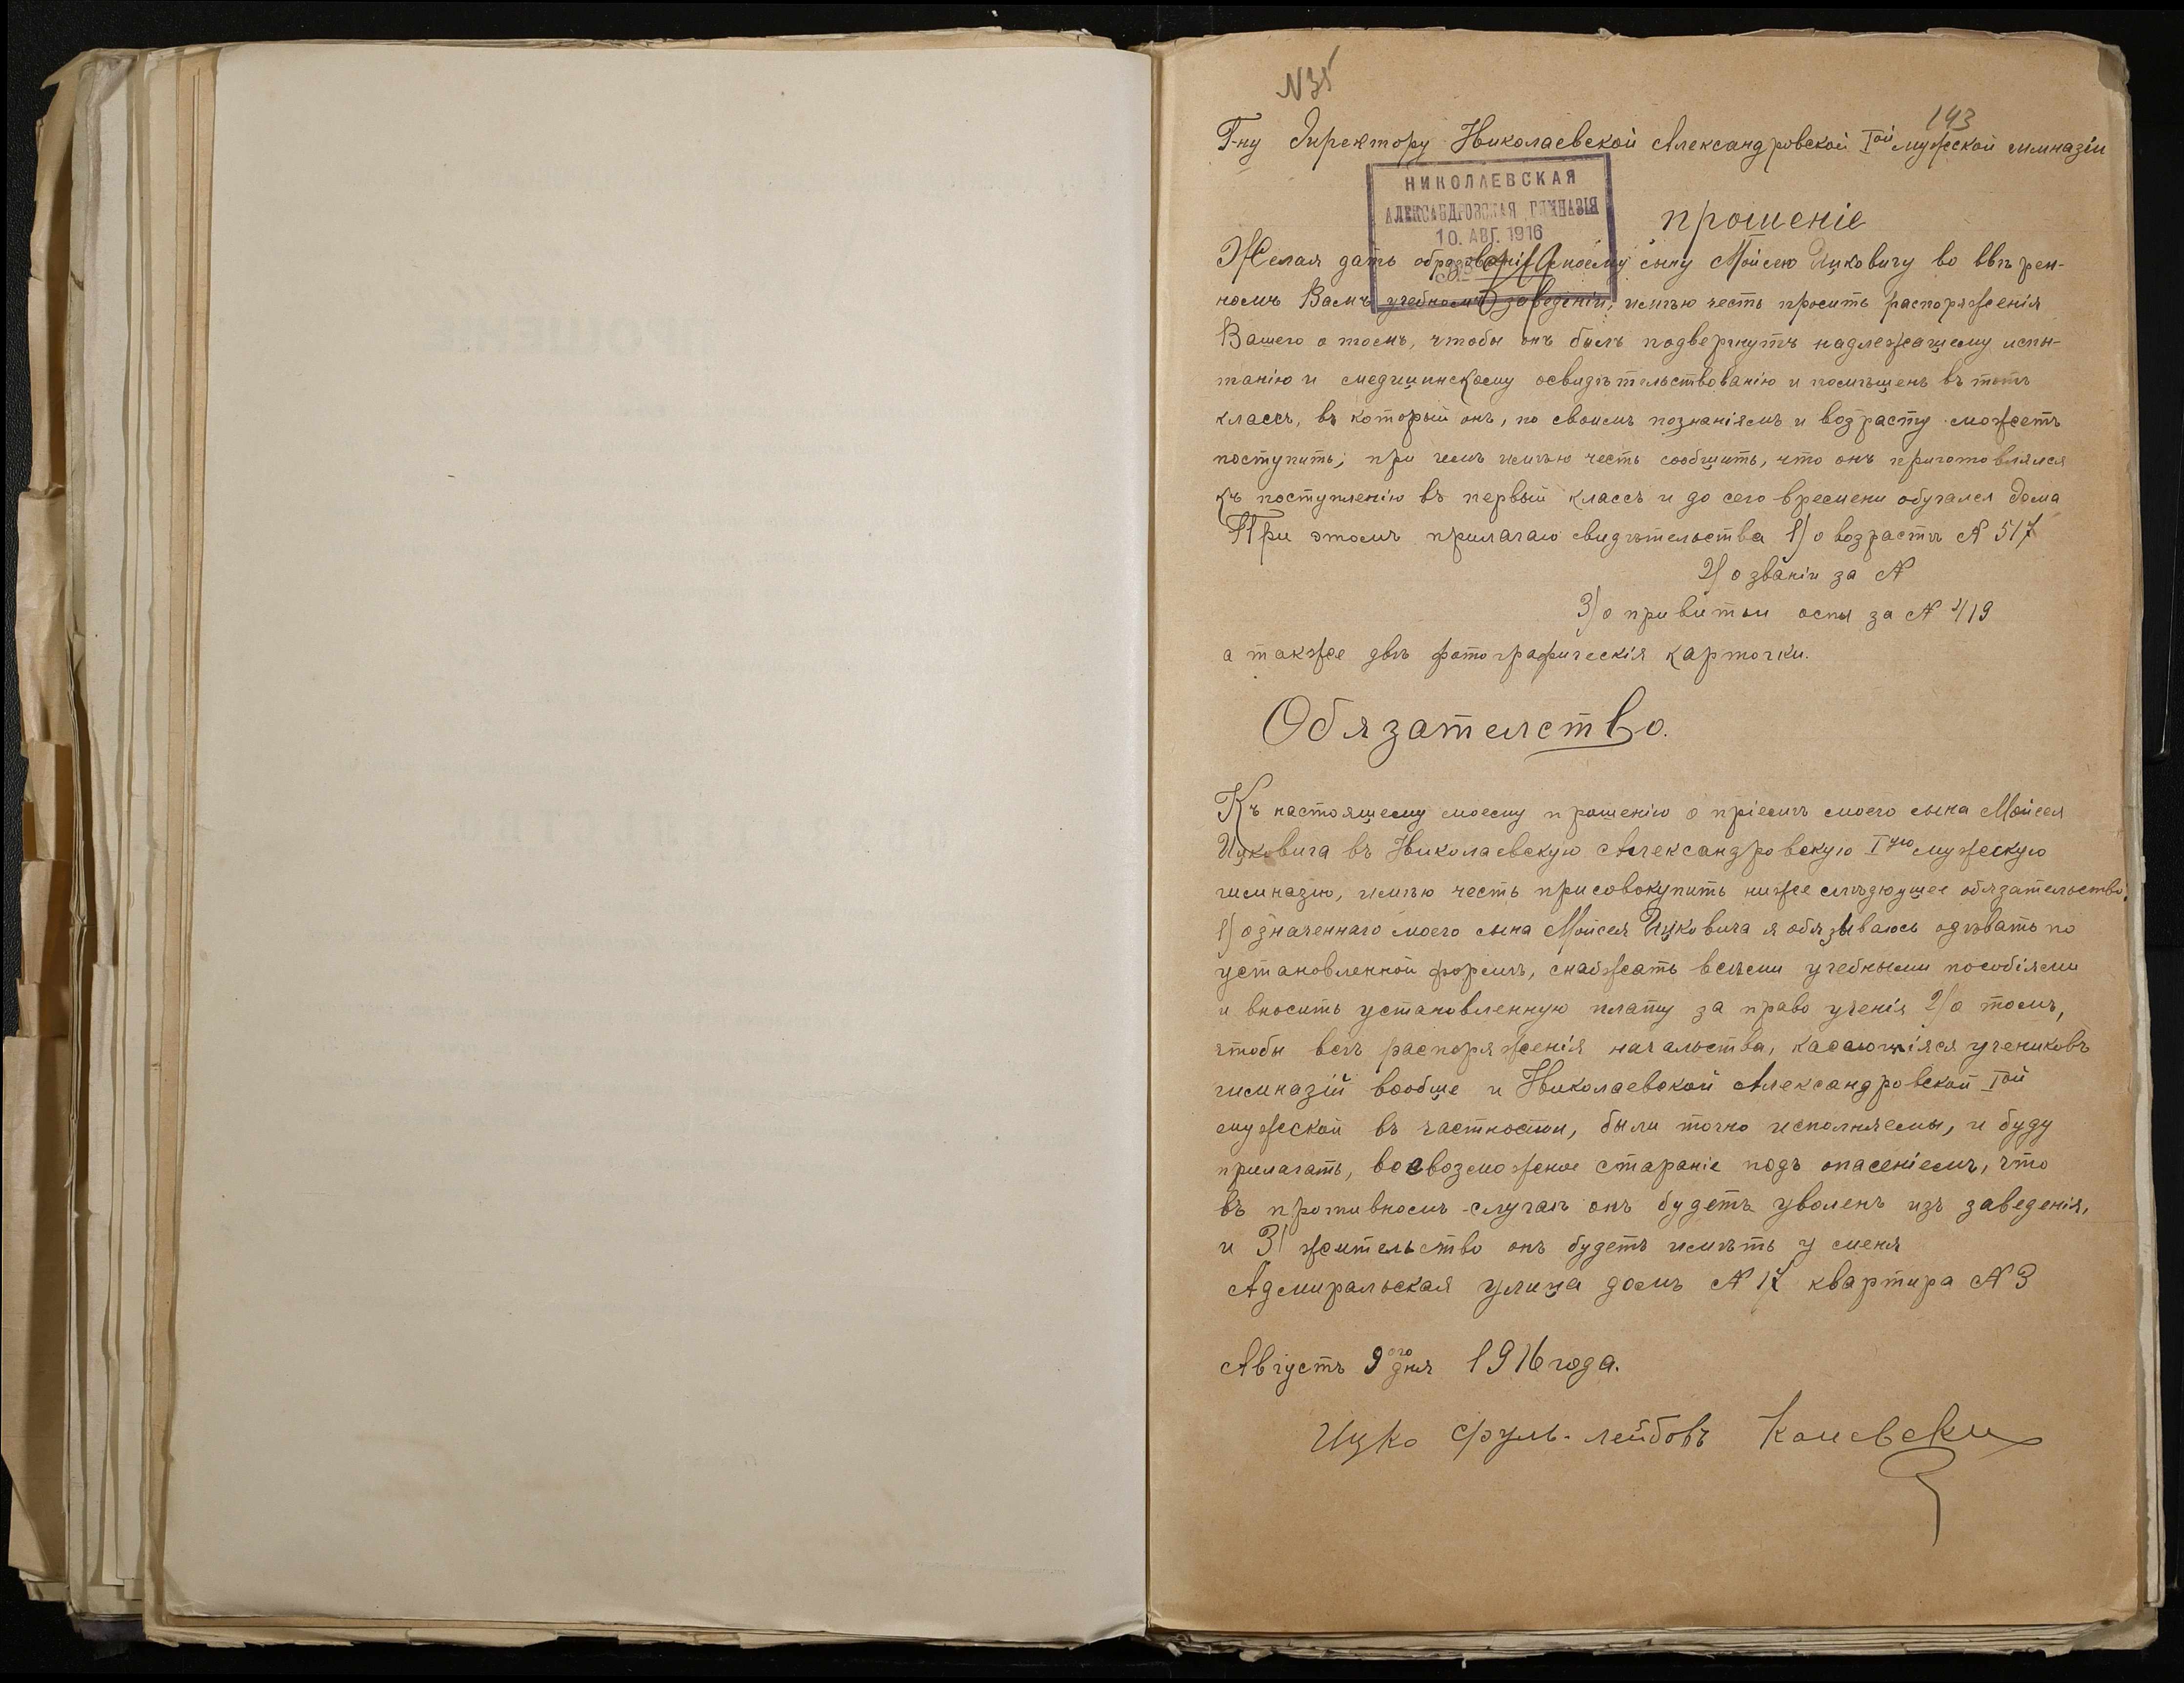 N35
143
Г-ну Директору Николаевской Александровской Iой мужской гимназіи
НИКОЛАЕВСКАЯ
АЛЕКСАНДРОВСКАЯ ГИМНАЗІЯ
10. АВГ. 1916
прошеніе
Желая дать образованіе моему сыну Мойсею Ицковичу во ввѣрен-
номъ Вамъ учебномъ заведеніи, имѣю честь просить распоряженія
Вашего о томъ, чтобы онъ былъ подвергнутъ надлежащему испы-
танію и медицинскому освидѣтельствованію и помѣщенъ въ тотъ
классъ, въ который онъ, по своимъ познаніямъ и возрасту можетъ
поступить; при чемъ имѣю честь сообщить, что онъ приготовлялся
къ поступленію въ первый классъ и до сего времени обучался дома
При этомъ прилагаю свидѣтельства 1) о возрастѣ N 517
2) о званіи за N
3) о привитіи оспы за N 419
а также двѣ фотографическія карточки.
Обязателство.
Къ настоящему моему прошенію о пріемѣ моего сына Мойсея
Ицковича въ Николаевскую Александровскую Iую мужескую
гимназію, имѣю честь присовокупить ниже слѣдующее обязательство:
1) означеннаго моего сына Мойсея Ицковича я обязываюсь одѣвать по
установленной формѣ, снабжать всѣми учебными пособіями
и вносить установленную плату за право ученія 2) о томъ,
чтобы всѣ распоряженія начальства, касающіяся учениковъ
гимназій вообще и Николаевской Александровской Iой
мужеской въ частности, были точно исполняемы, и буду
прилагать, всевозможное стараніе подъ опасеніемъ, что
въ противномъ случаѣ онъ будетъ уволенъ изъ заведенія,
и 3) жительство онъ будетъ имѣть у меня
Адмиральская улица домъ N 17 квартира N 3
Августъ 9ого дня 1916 года.
Ицко Сруль-лейбовъ Каневски